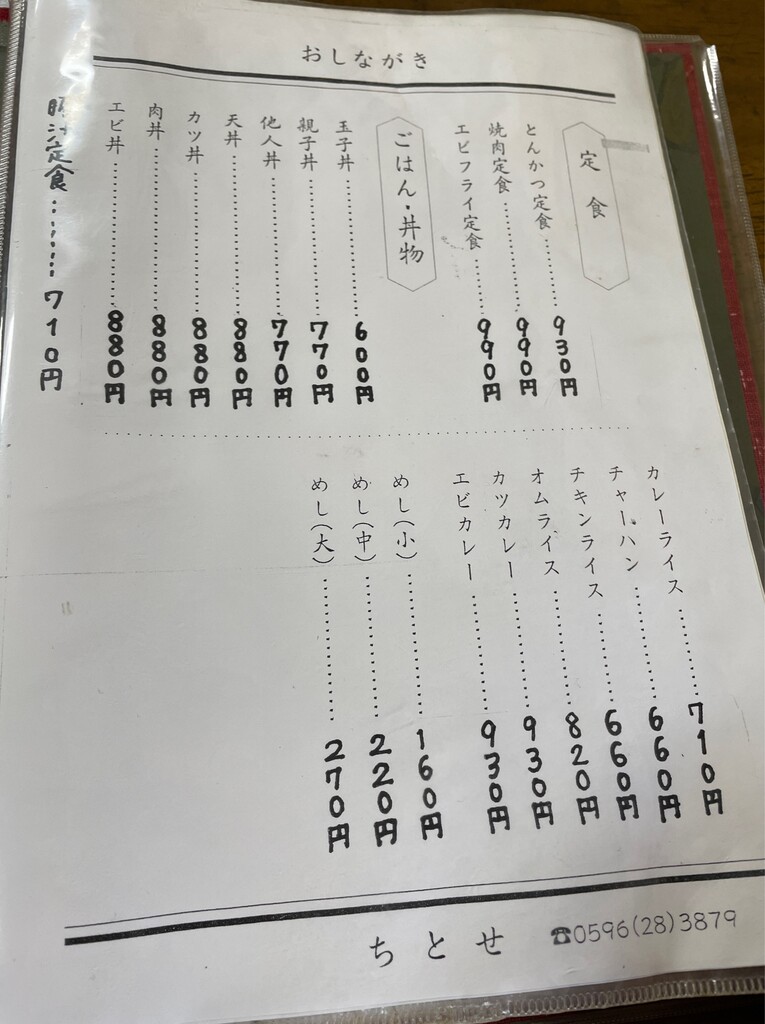 おしながき
定食
とんかつ定食……………930円
焼肉定食……………990円
エビフライ定食……990円
ごはん・丼物
玉子丼……………600円
親子丼……………770円
他人丼……………770円
天丼……………880円
カツ丼……………880円
肉丼……………880円
エビ丼……………880円
豚汁定食………710円
カレーライス…………710円
チャーハン…………660円
チキンライス…………660円
オムライス…………820円
カツカレー…………930円
エビカレー…………930円
めし(小)…………160円
めし(中)…………220円
めし(大)…………270円
ちとせ
☎0596(28)3879